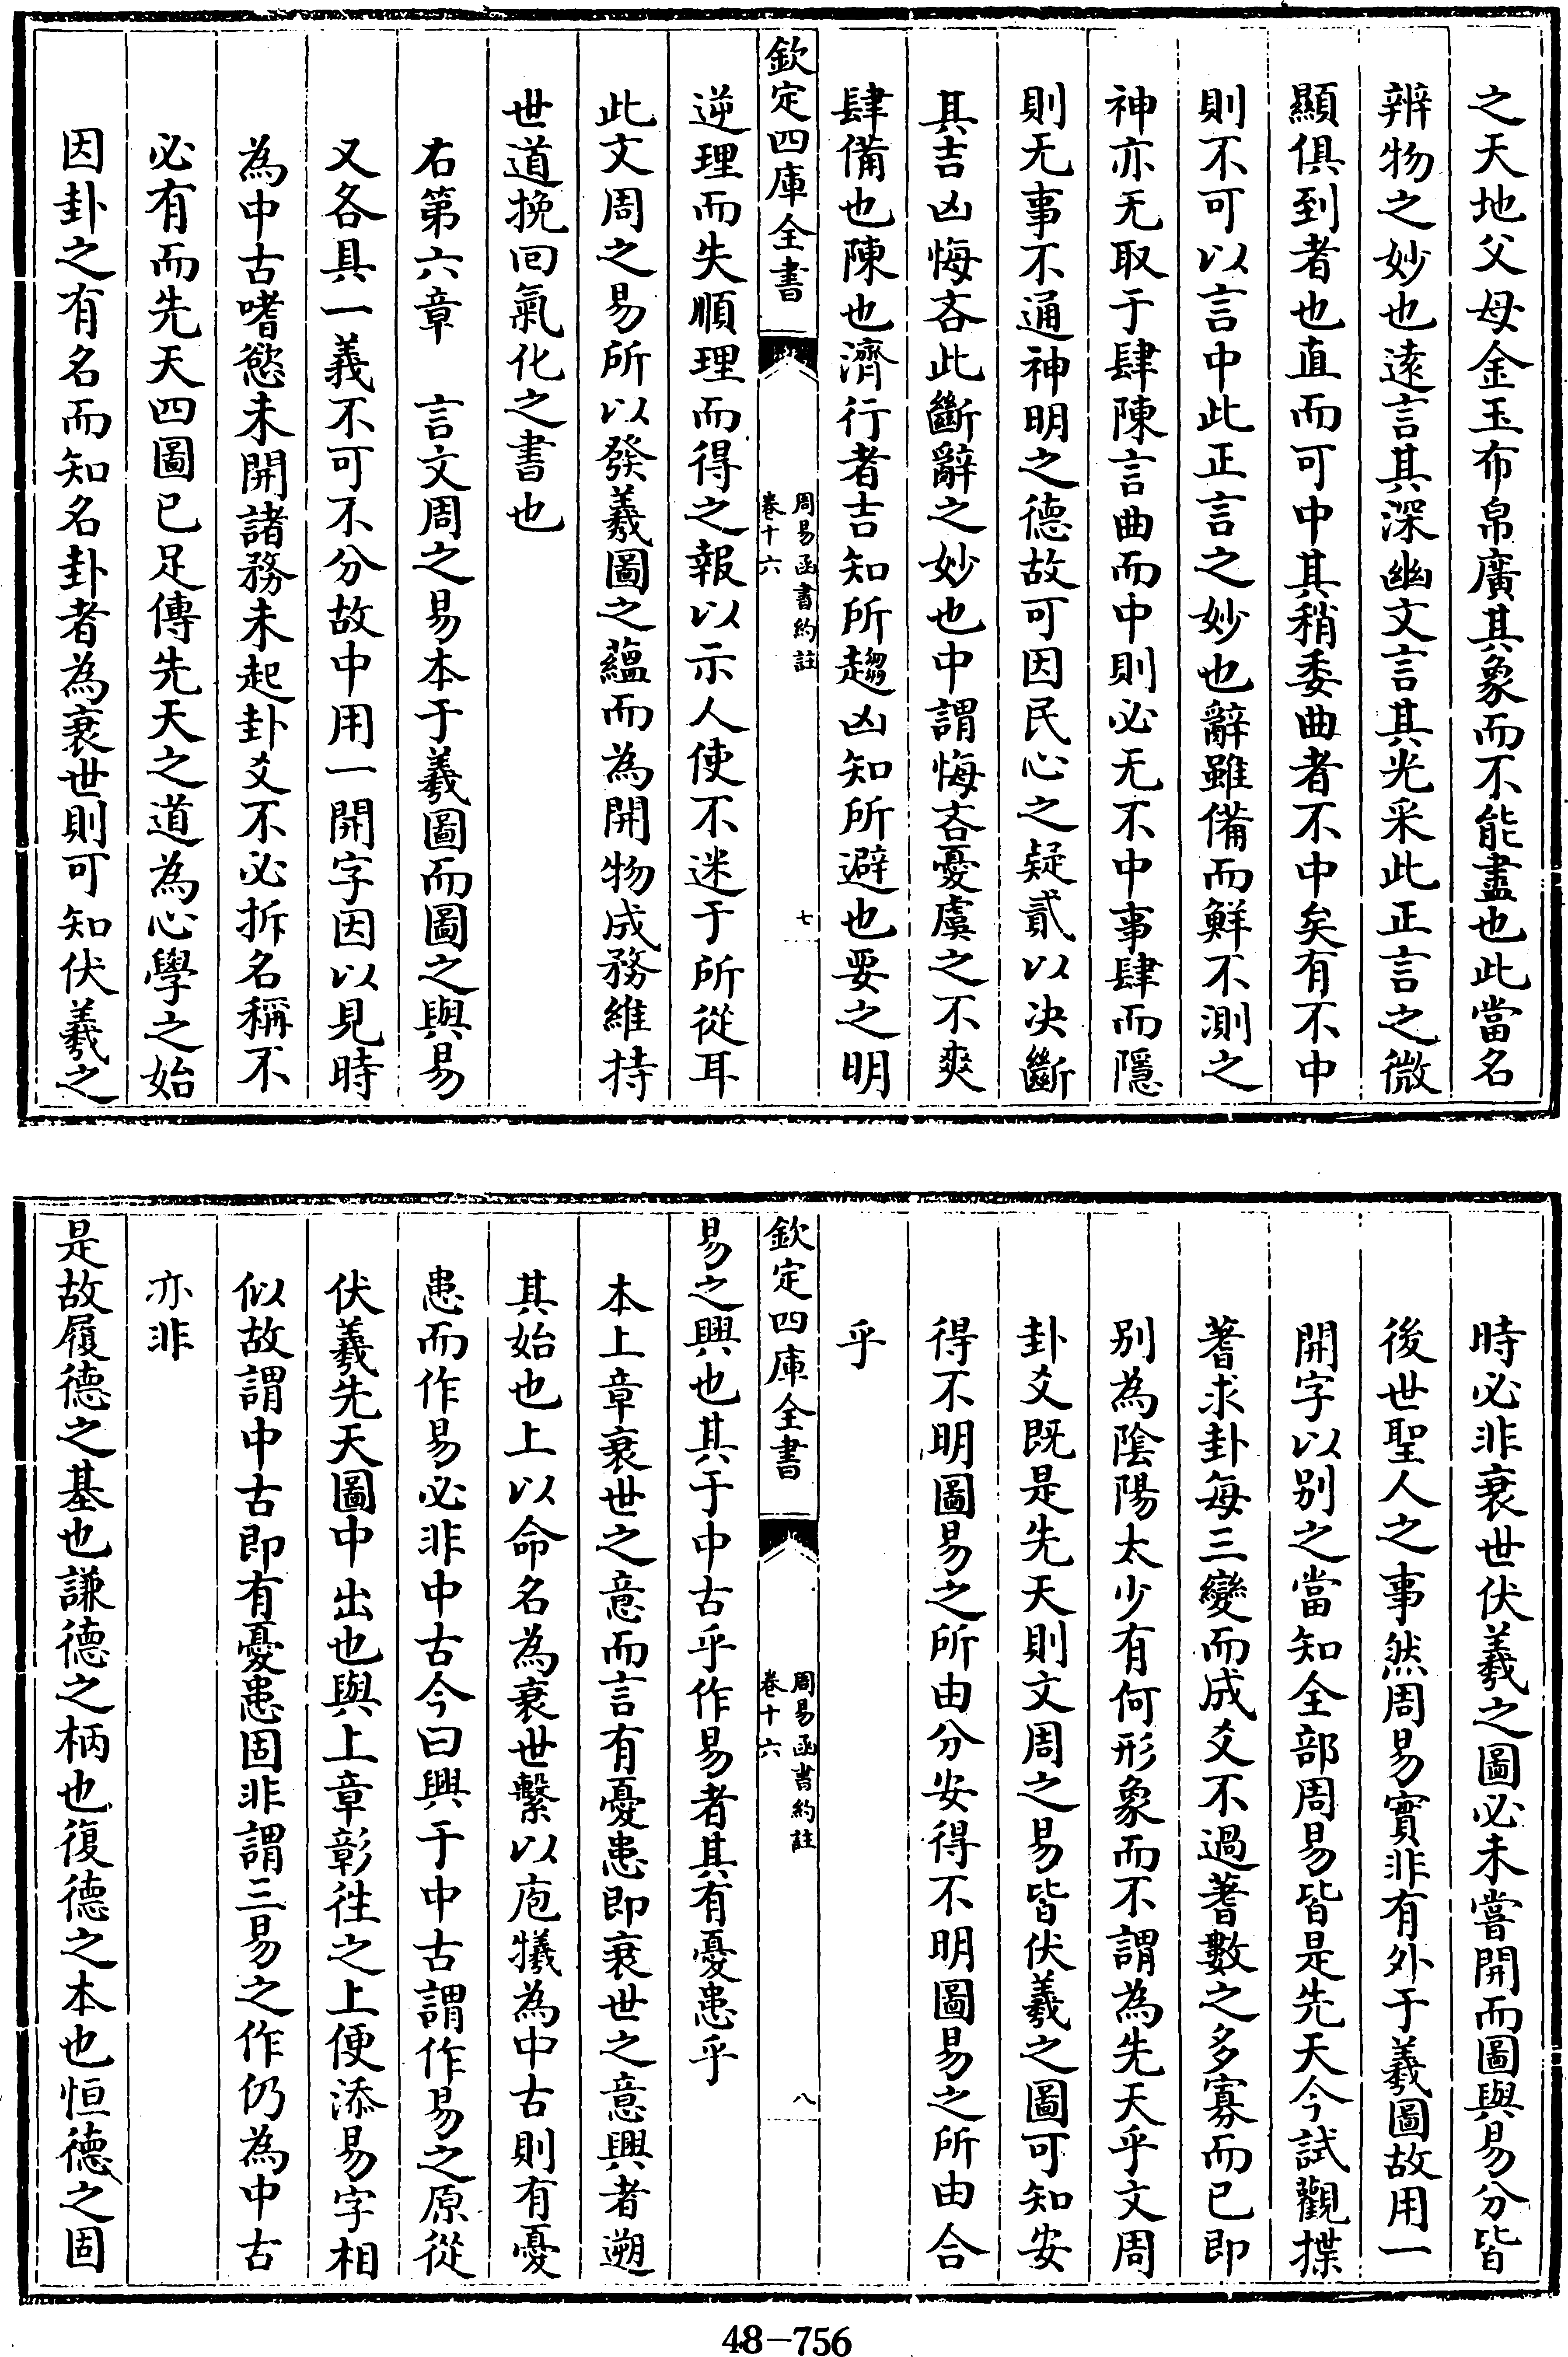 之天地父母金玉布帛廣其象而不能盡也此當名
辨物之妙也遠言其深幽文言其光采此正言之微
顯俱到者也直而可中其稍委曲者不中矣有不中
則不可以言中此正言之妙也辭雖備而鮮不測之
神亦无取于肆陳言曲而中則必无不中事肆而隱
則无事不通神明之德故可因民心之疑貳以决斷
其吉凶悔吝此斷辭之妙也中謂悔吝憂虞之不爽
肆備也陳也濟行者吉知所趨凶知所避也要之明
欽定四庫全書
周易函書約註
卷十六
七
逆理而失順理而得之報以示人使不迷于所從耳
此文周之易所以發羲圖之蘊而為開物成務維持
世道挽回氣化之書也
右第六章 言文周之易本于羲圖而圖之與易
又各具一義不可不分故中用一開字因以見時
為中古嗜慾未開諸務未起卦爻不必拆名稱不
必有而先天四圖已足傳先天之道為心學之始
因卦之有名而知名卦者為衰世則可知伏羲之
時必非衰世伏羲之圖必未嘗開而圖與易分皆
後世聖人之事然周易實非有外于羲圖故用一
開字以别之當知全部周易皆是先天今試觀揲
蓍求卦每三變而成爻不過蓍數之多寡而已即
别為陰陽太少有何形象而不謂為先天乎文周
卦爻既是先天則文周之易皆伏羲之圖可知安
得不明圖易之所由分安得不明圖易之所由合
乎
欽定四庫全書
周易函書約註
卷十六
八
易之興也其于中古乎作易者其有憂患乎
本上章衰世之意而言有憂患即衰世之意興者遡
其始也上以命名為衰世繫以庖犧為中古則有憂
患而作易必非中古今曰興于中古謂作易之原從
伏羲先天圖中出也與上章彰往之上便添易字相
似故謂中古即有憂患固非謂三易之作仍為中古
亦非
是故履德之基也謙德之柄也復德之本也恒德之固
48-756